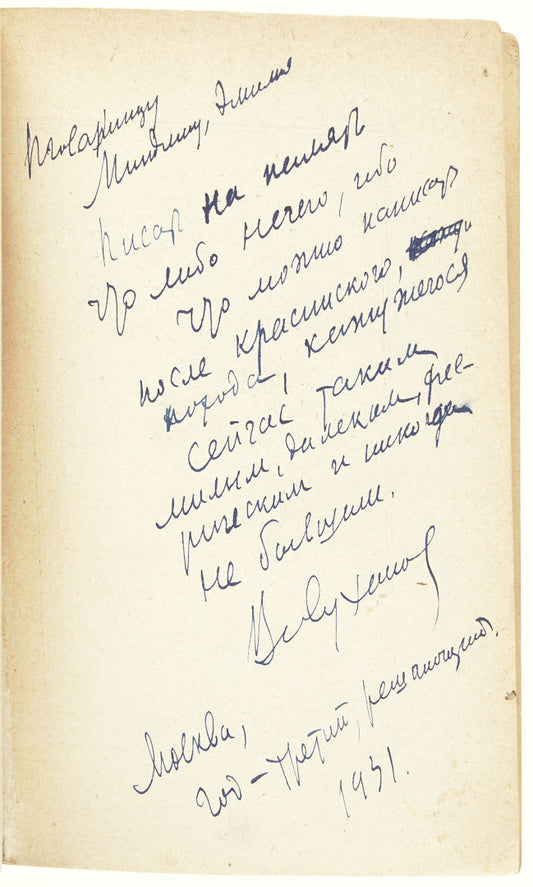 товарищу
Миндлину, Эмилия
Писать на память
что либо нечего, ибо
что можно написать
после красинского,
похода, кажущегося
сейчас таким
милым, далеким, фее-
рическим и никогда
не бывшим.
Москва,
год – третий, решающий.
1931.